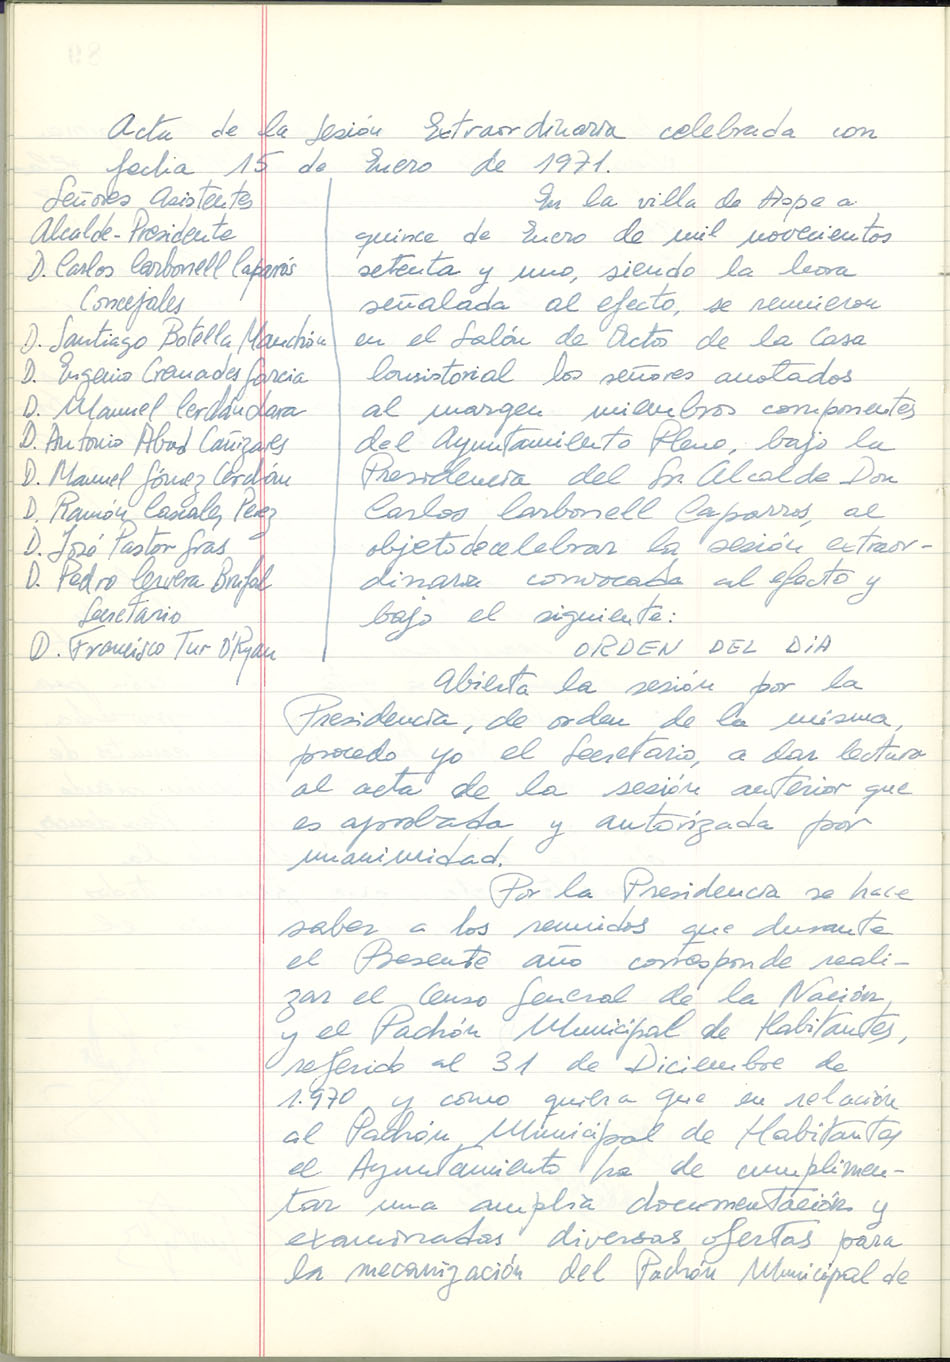 Acta de la Sesión Extraordinaria celebrada con
fecha 15 de Enero de 1971.
Señores Asistentes
Alcalde-Presidente
D. Carlos Carbonell Caparrós
Concejales
D. Santiago Botella Manchón
D. Eugenio Cremades Garcia
D. Manuel Cerdán Jara
D. Antonio Abad Cañizares
D. Manuel Gómez Cerdán
D. Ramón Cascales Perez
D. José Pastor Gras
D. Pedro Cervera Brufal
Secretario
D. Francisco Tur O'Ryan
En la villa de Aspe a
quince de Enero de mil novecientos
setenta y uno, siendo la hora
señalada al efecto, se reunieron
en el Salón de Actos de la Casa
Consistorial los señores anotados
al margen miembros componentes
del Ayuntamiento Pleno, bajo la
Presidencia del Sr. Alcalde Don
Carlos Carbonell Caparros, al
objeto de celebrar la sesión extraor-
dinaria convocada al efecto y
bajo el siguiente:
ORDEN DEL DIA
Abierta la sesión por la
Presidencia, de orden de la misma,
procedo yo el Secretario, a dar lectura
al acta de la sesión anterior que
es aprobada y autorizada por
unanimidad.
Por la Presidencia se hace
saber a los reunidos que durante
el Presente año corresponde reali-
zar el Censo General de la Nación,
y el Padrón Municipal de Habitantes,
referido al 31 de Diciembre de
1.970 y como quiera que en relación
al Padrón Municipal de Habitantes
el Ayuntamiento ha de cumplimen-
tar una amplia documentación y
examinadas diversas ofertas para
la mecanización del Padrón Municipal de